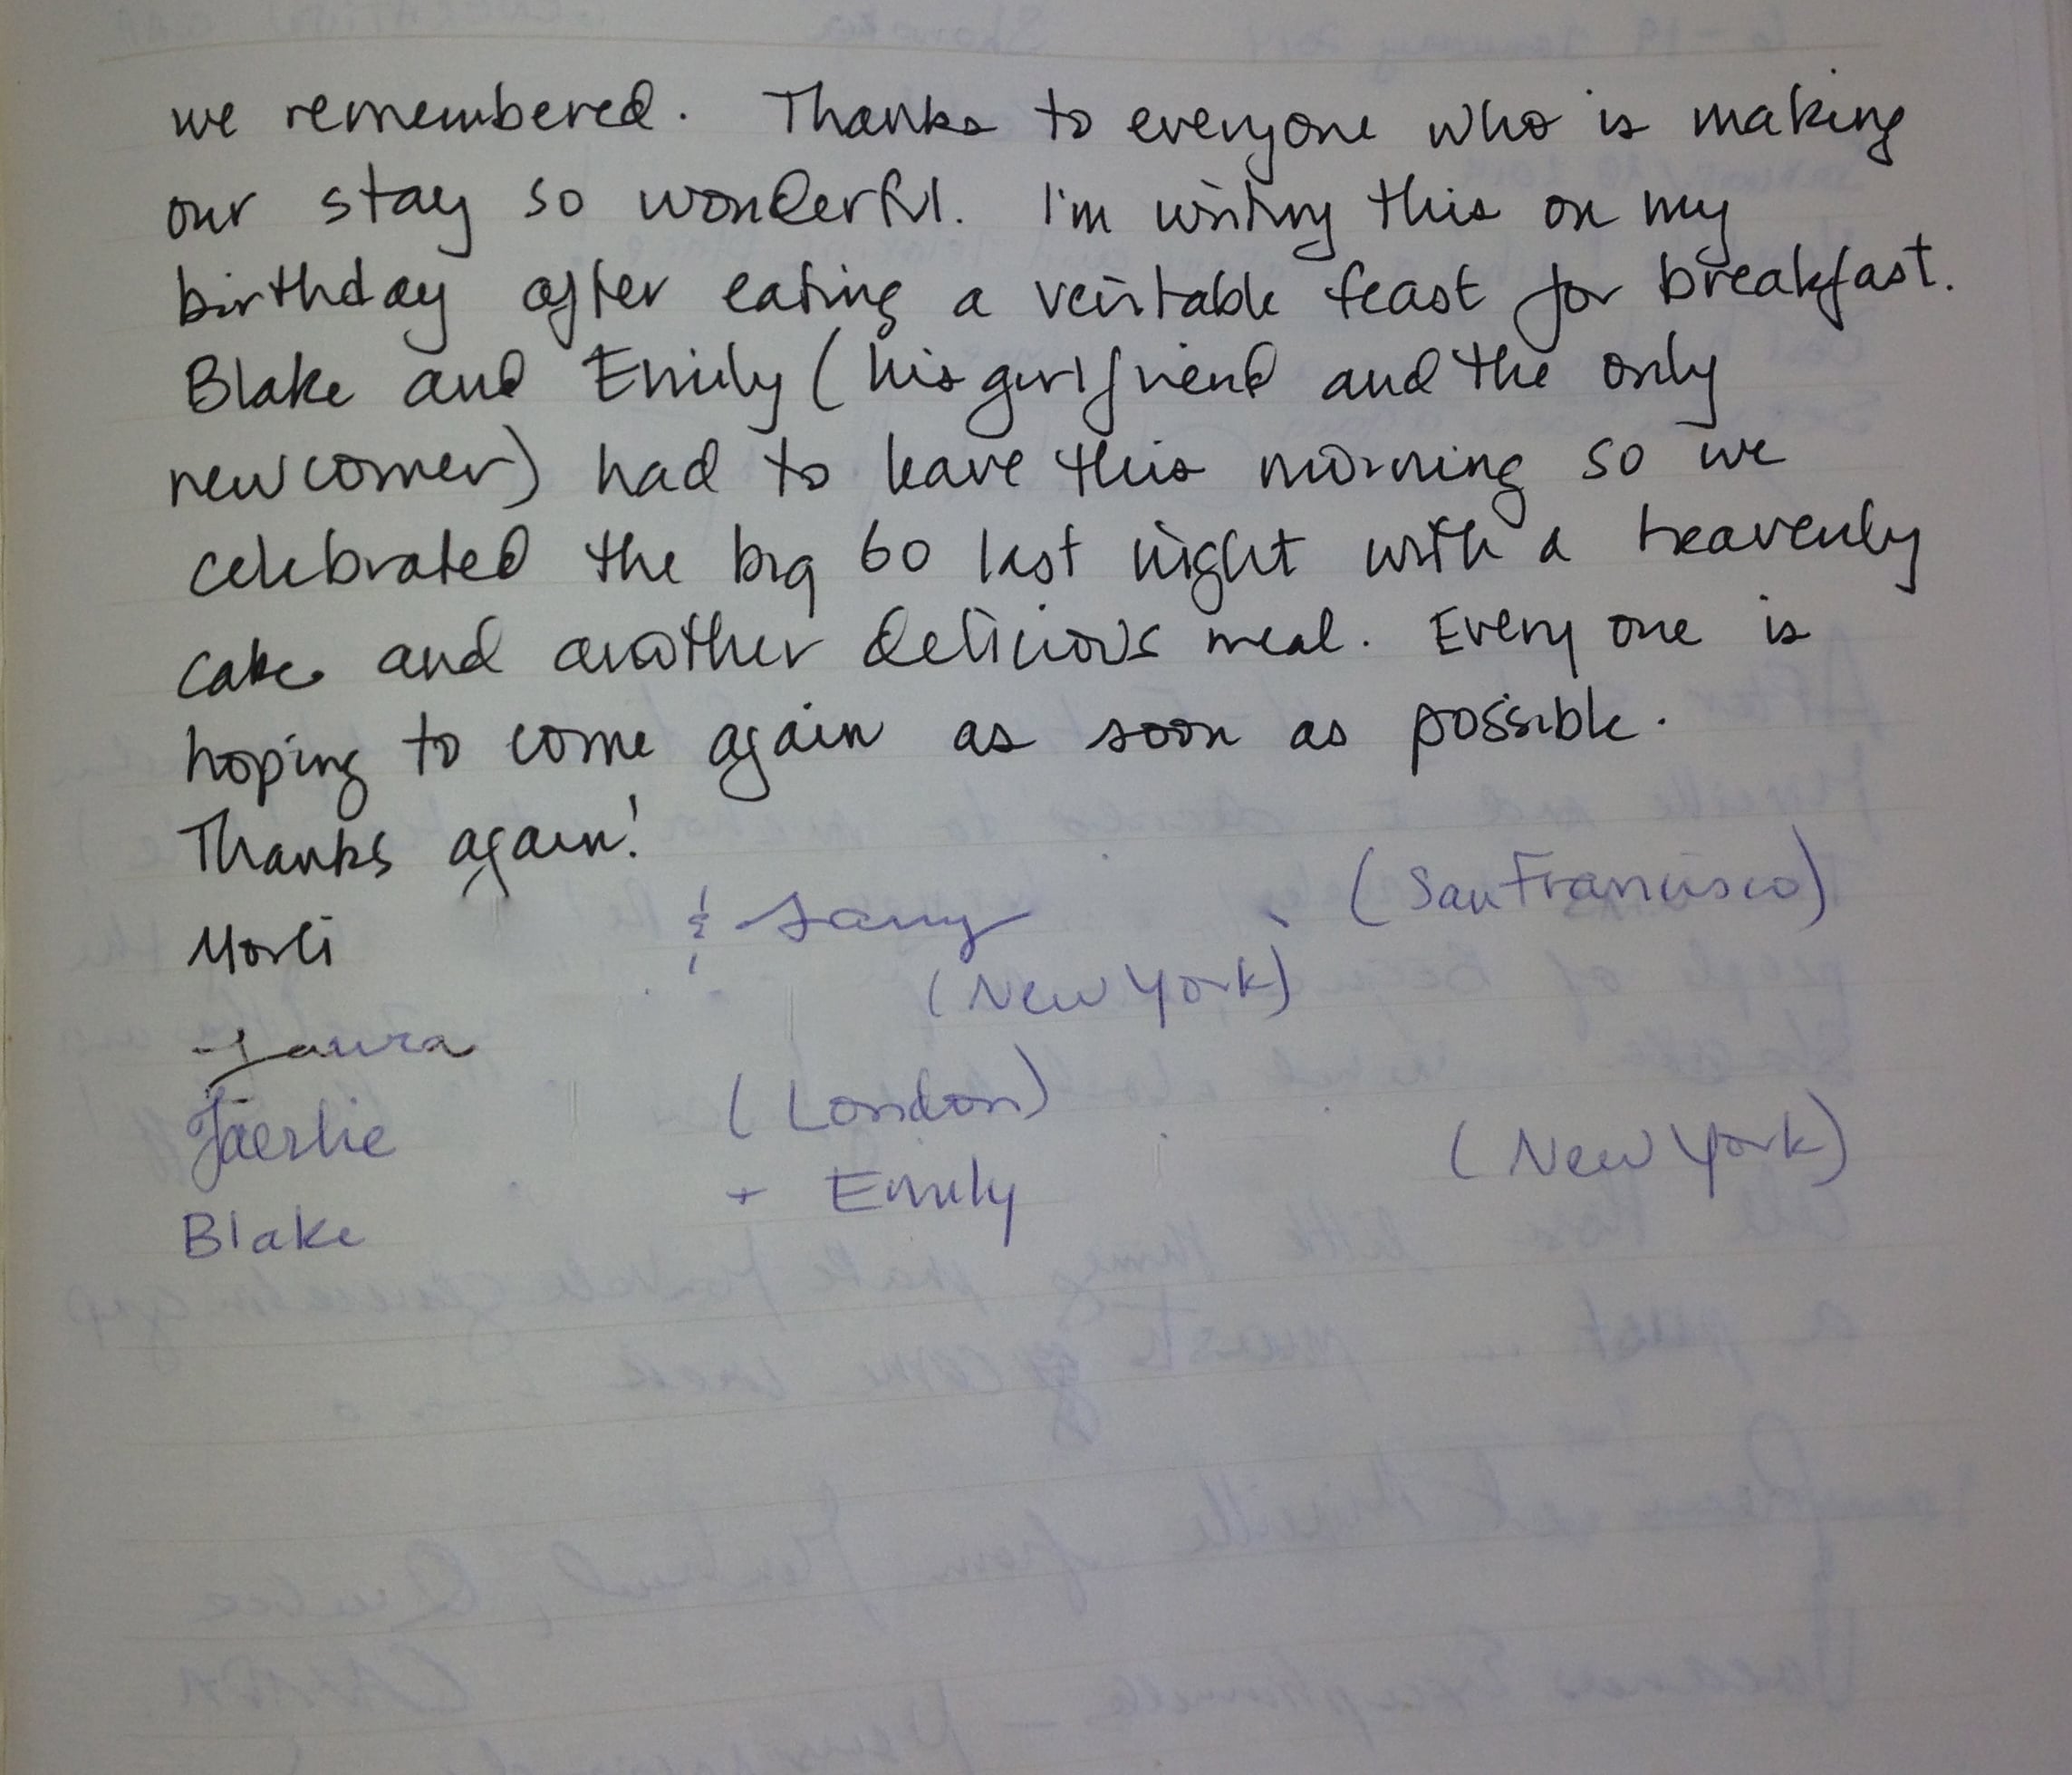 we remembered. Thanks to everyone who is making
our stay so wonderful. I'm writing this on my
birthday after eating a veritable feast for breakfast.
Blake and Emily (his girlfriend and the only
newcomer) had to leave this morning so we
celebrated the big 60 last night with a heavenly
cake and another delicious meal. Every one is
hoping to come again as soon as possible.
Thanks again!
& (San Francisco)
(New York)
Laura
(London)
(New York)
+ Emily
Blake